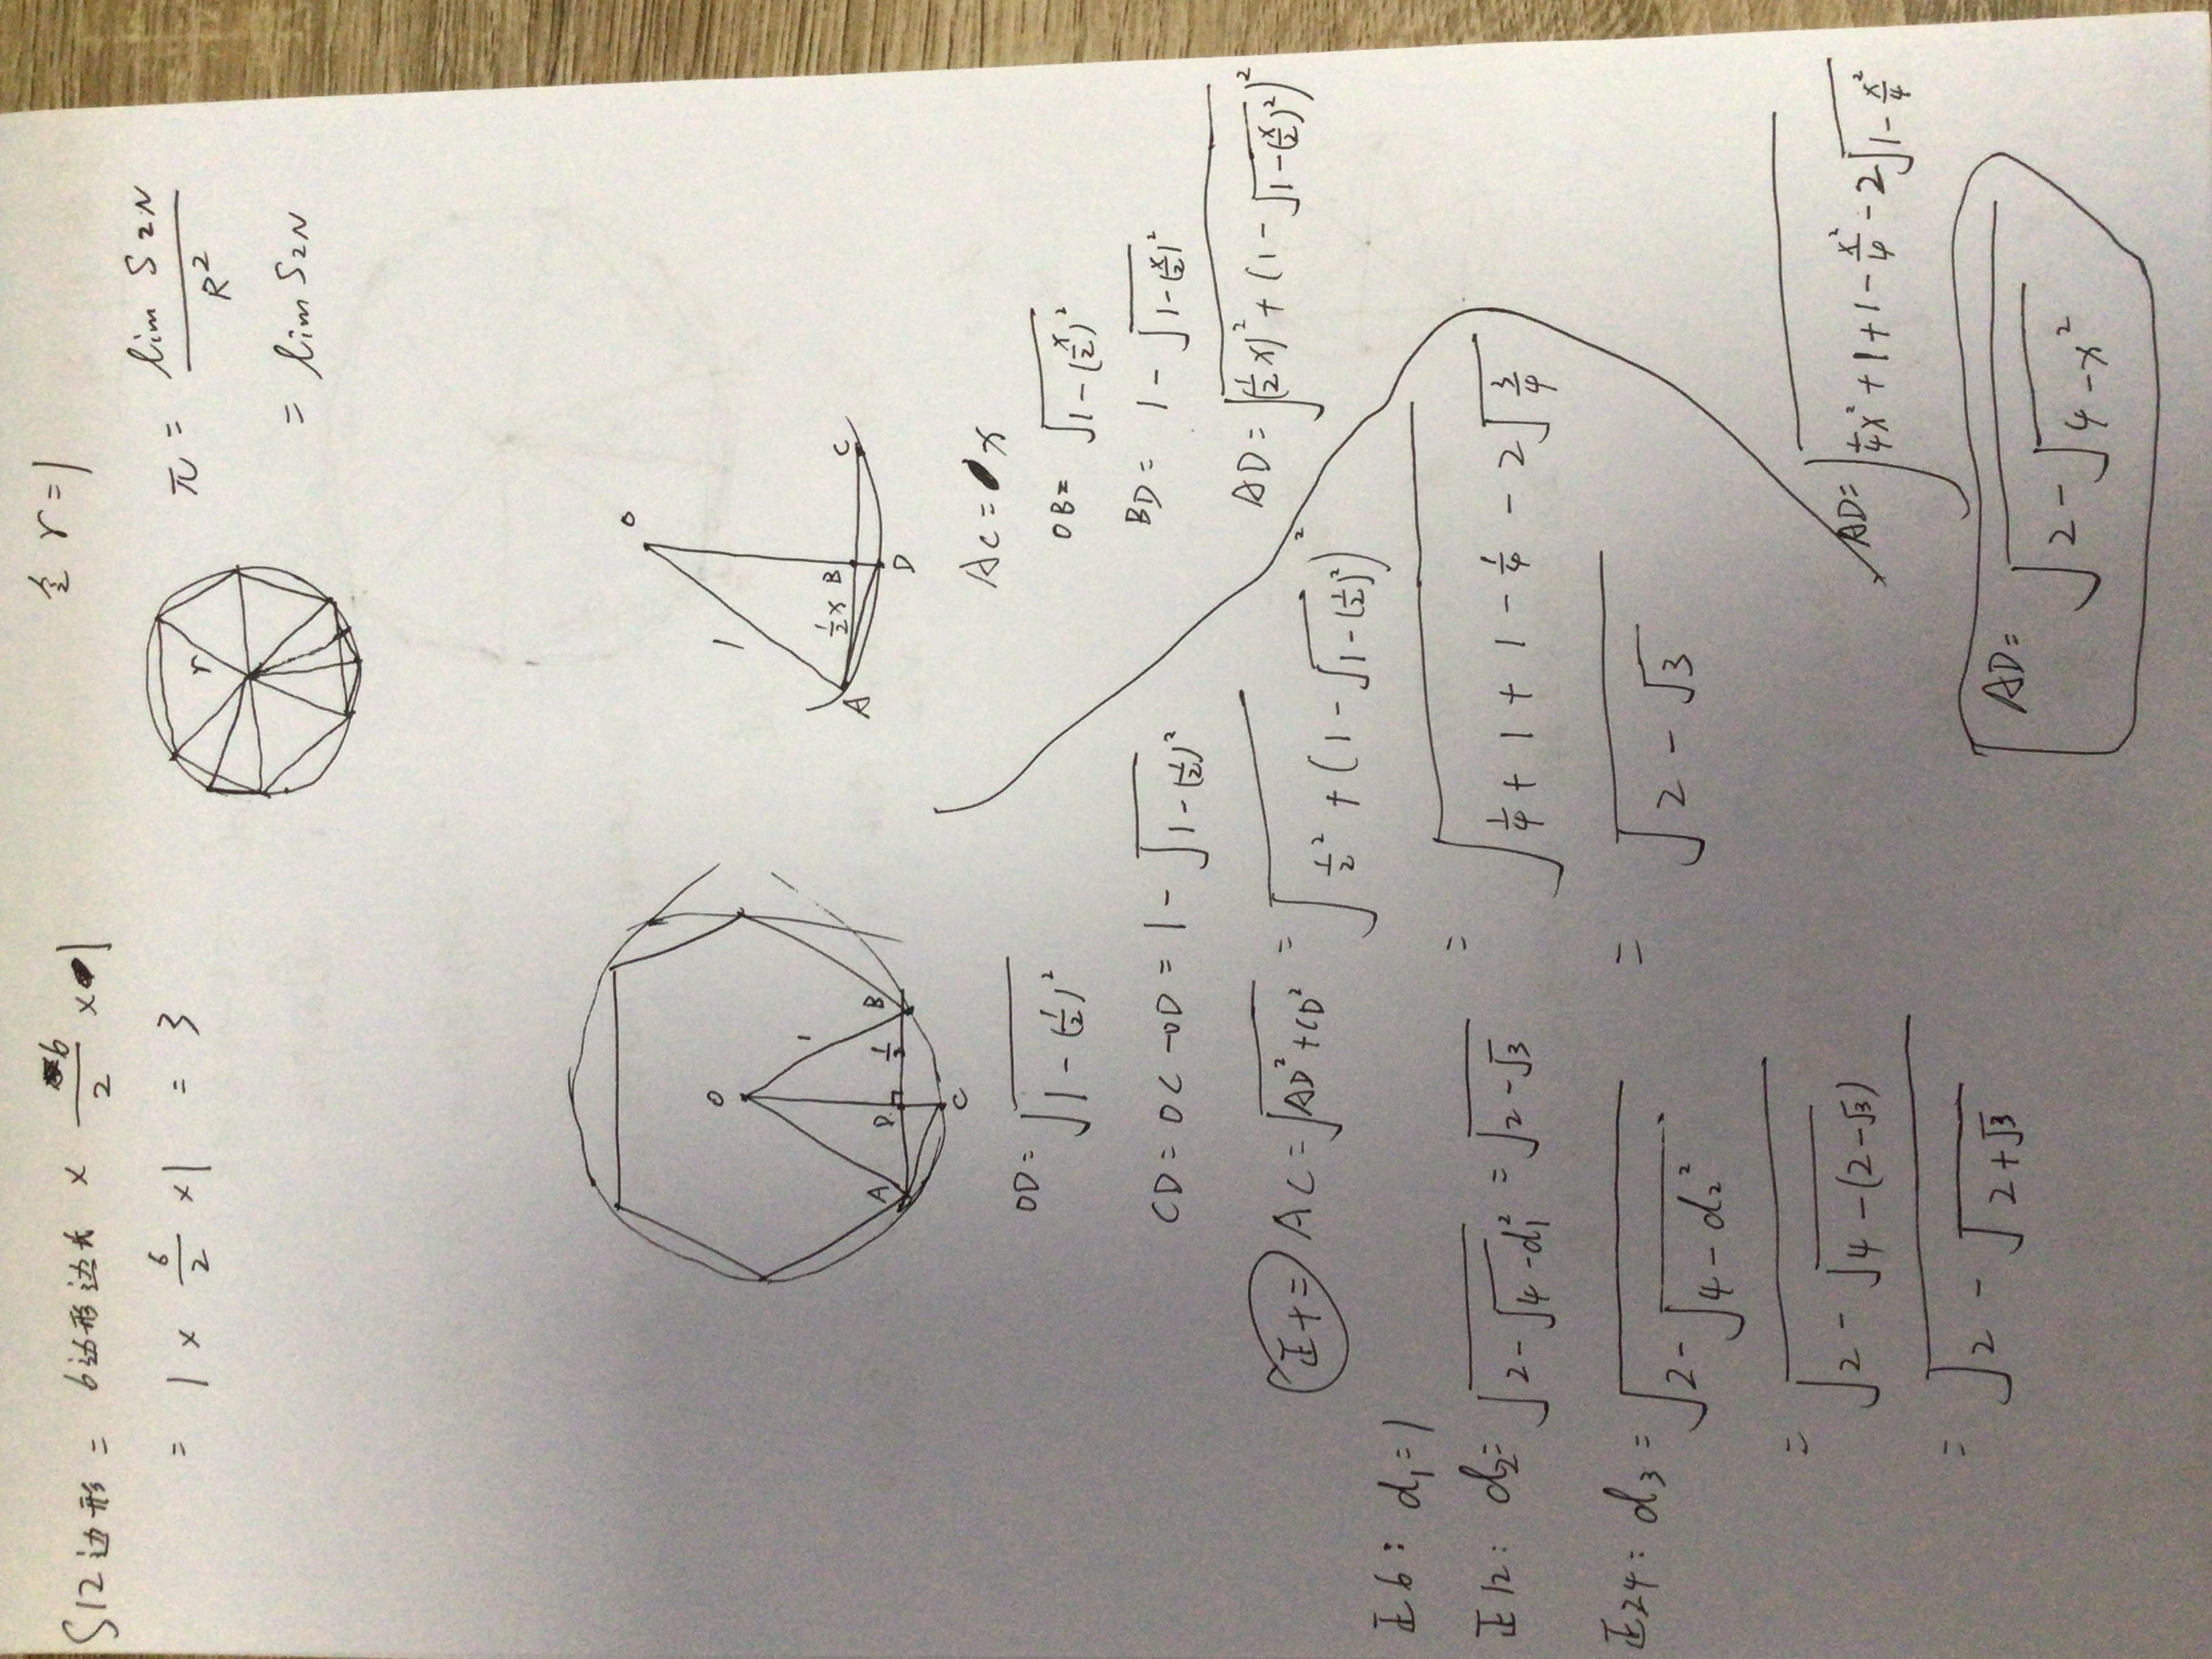 S12边形 = 6边形边长 × 6/2 × 1
= 1 × 6/2 × 1 = 3
令 r=1
r
π = lim S2N / R²
= lim S2N
O
1
A D 1/2 B
C
OD = √(1-(1/2)²)
CD = OC-OD = 1-√(1-(1/2)²)
正十二 AC = √(AD²+CD²) = √(1/2² + (1-√(1-(1/2)²))²)
= √(1/4+1+1-1/4-2√(3/4))
= √(2-√3)
正6: d₁=1
正12: d₂= √(2-√(4-d₁²)) = √(2-√3)
正24: d₃ = √(2-√(4-d₂²))
= √(2-√(4-(2-√3)))
= √(2-√(2+√3))
O
1
A 1/2x B C
D
AC = x
OB= √(1-(x/2)²)
BD= 1-√(1-(x/2)²)
AD = √((1/2x)²+(1-√(1-(x/2)²))²)
AD= √(1/4x²+1+1-x²/4-2√(1-x²/4))
AD= √(2-√(4-x²))